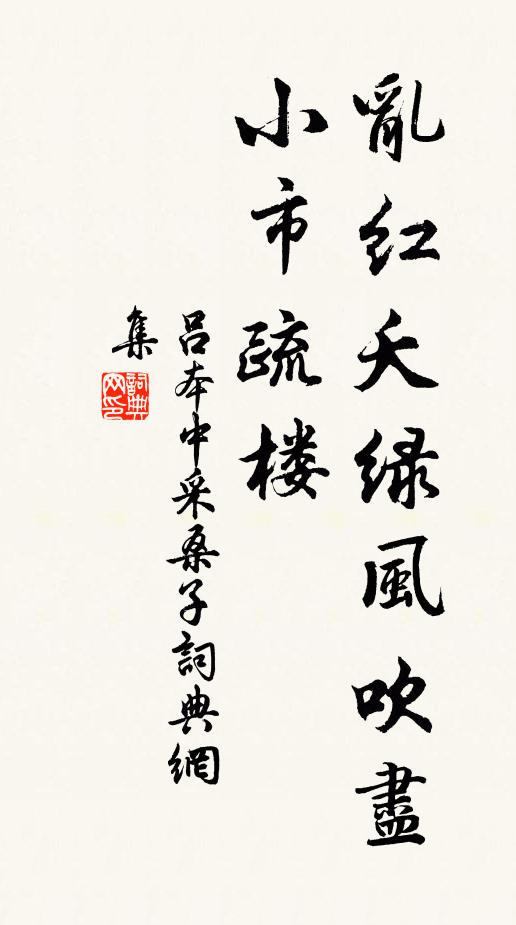 亂紅夭绿風吹盡
小市疏楼
吕本中采桑子詞典網
集
詞典
网印